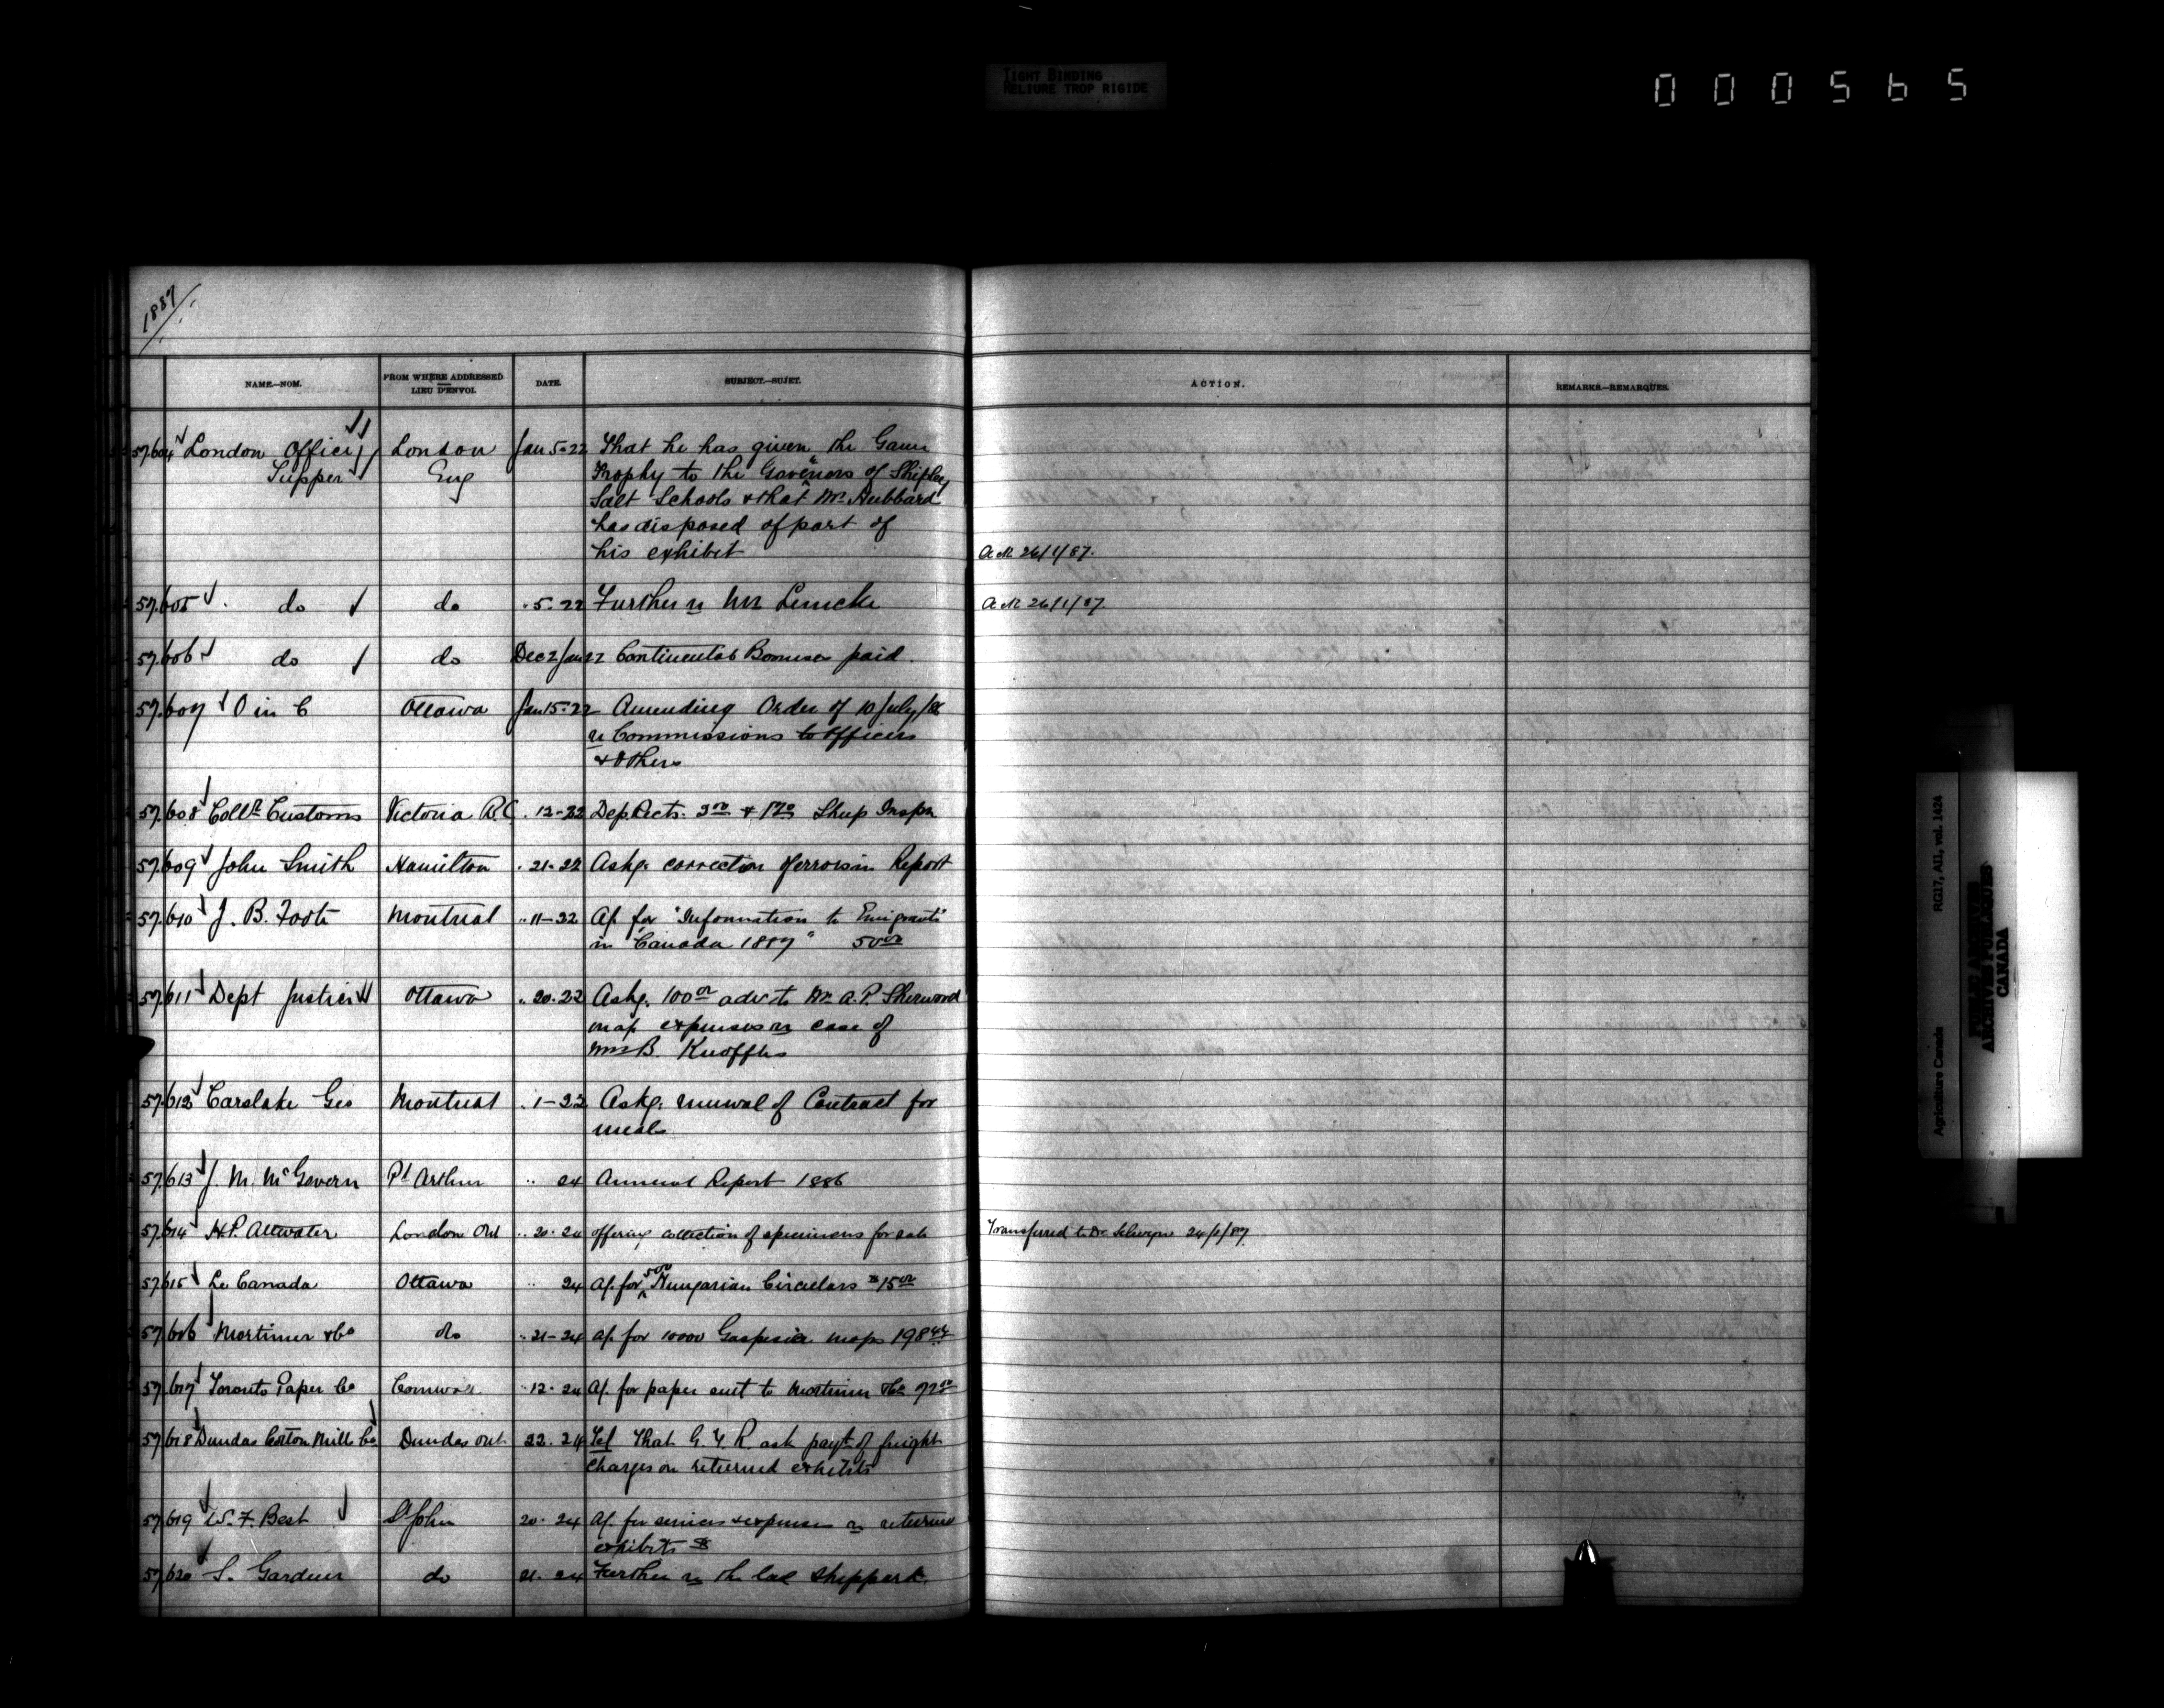 TIGHT BINDING
RELIURE TROP RIGIDE
000565
1887
NAME.—NOM. FROM WHERE ADDRESSED LIEU D'ENVOI. DATE. SUBJECT.—SUJET. ACTION. REMARKS.—REMARQUES.
57.604 London Office London Jan 5-22 That he has given the Game
Tupper Eng Trophy to the Governors of Shipley
Salt Schools & that Mr Hubbard
has disposed of part of
his exhibit 26/1/87.
57.605 do do " 5-22 Further re Mr 26/1/87.
57.606 do do Dec 2 Jan 22 Continental Bonuses paid.
57.607 O in C Ottawa Jan 15-22 Amending Order of 10 July/86
re Commissions to officers
& others
57.608 Collr Customs Victoria B.C. " 12-22 Dep Rects. & Sheep Inspn
57.609 John Smith Hamilton " 21-22 Askg. correction of errors in Report
57.610 J. B. Foote Montreal " 11-22 A/. for "Information to Emigrants"
in "Canada 1887" 50 00
57.611 Dept Justice Ottawa " 20-22 Askg. 100 00 adv. to Mr A. P. Sherwood
expenses re case of
Mrs B.
57.612 Carslake Geo Montreal " 1-22 Askg. renewal of Contract for
meals
57.613 J. M. McGovern Pt Arthur " 24 Annual Report 1886
57.614 H.P. Attwater London Ont " 20-24 offering collection of specimens for sale Transferred to Dr Selwyn 24/1/87
57.615 Le Canada Ottawa " 24 A/. for 500 Hungarian Circulars $15 00
57.616 Mortimer & Co do " 21-24 A/. for 10000 Gaspesia maps 198 44
57.617 Toronto Paper Co Cornwall " 12-24 A/. for paper sent to Mortimer & Co
57.618 Dundas Cotton Mills Co Dundas Ont 22-24 Tel That G. T. R. ask payt. of freight
charges on returned exhibits
57.619 W. F. Best St John 20-24 A/. for services & expenses re returned
exhibits
57.620 S. Gardner do 21-24 Further re the lad Sheppard.
Agriculture Canada RG17, AII, vol. 1424
PUBLIC ARCHIVES
ARCHIVES PUBLIQUES
CANADA